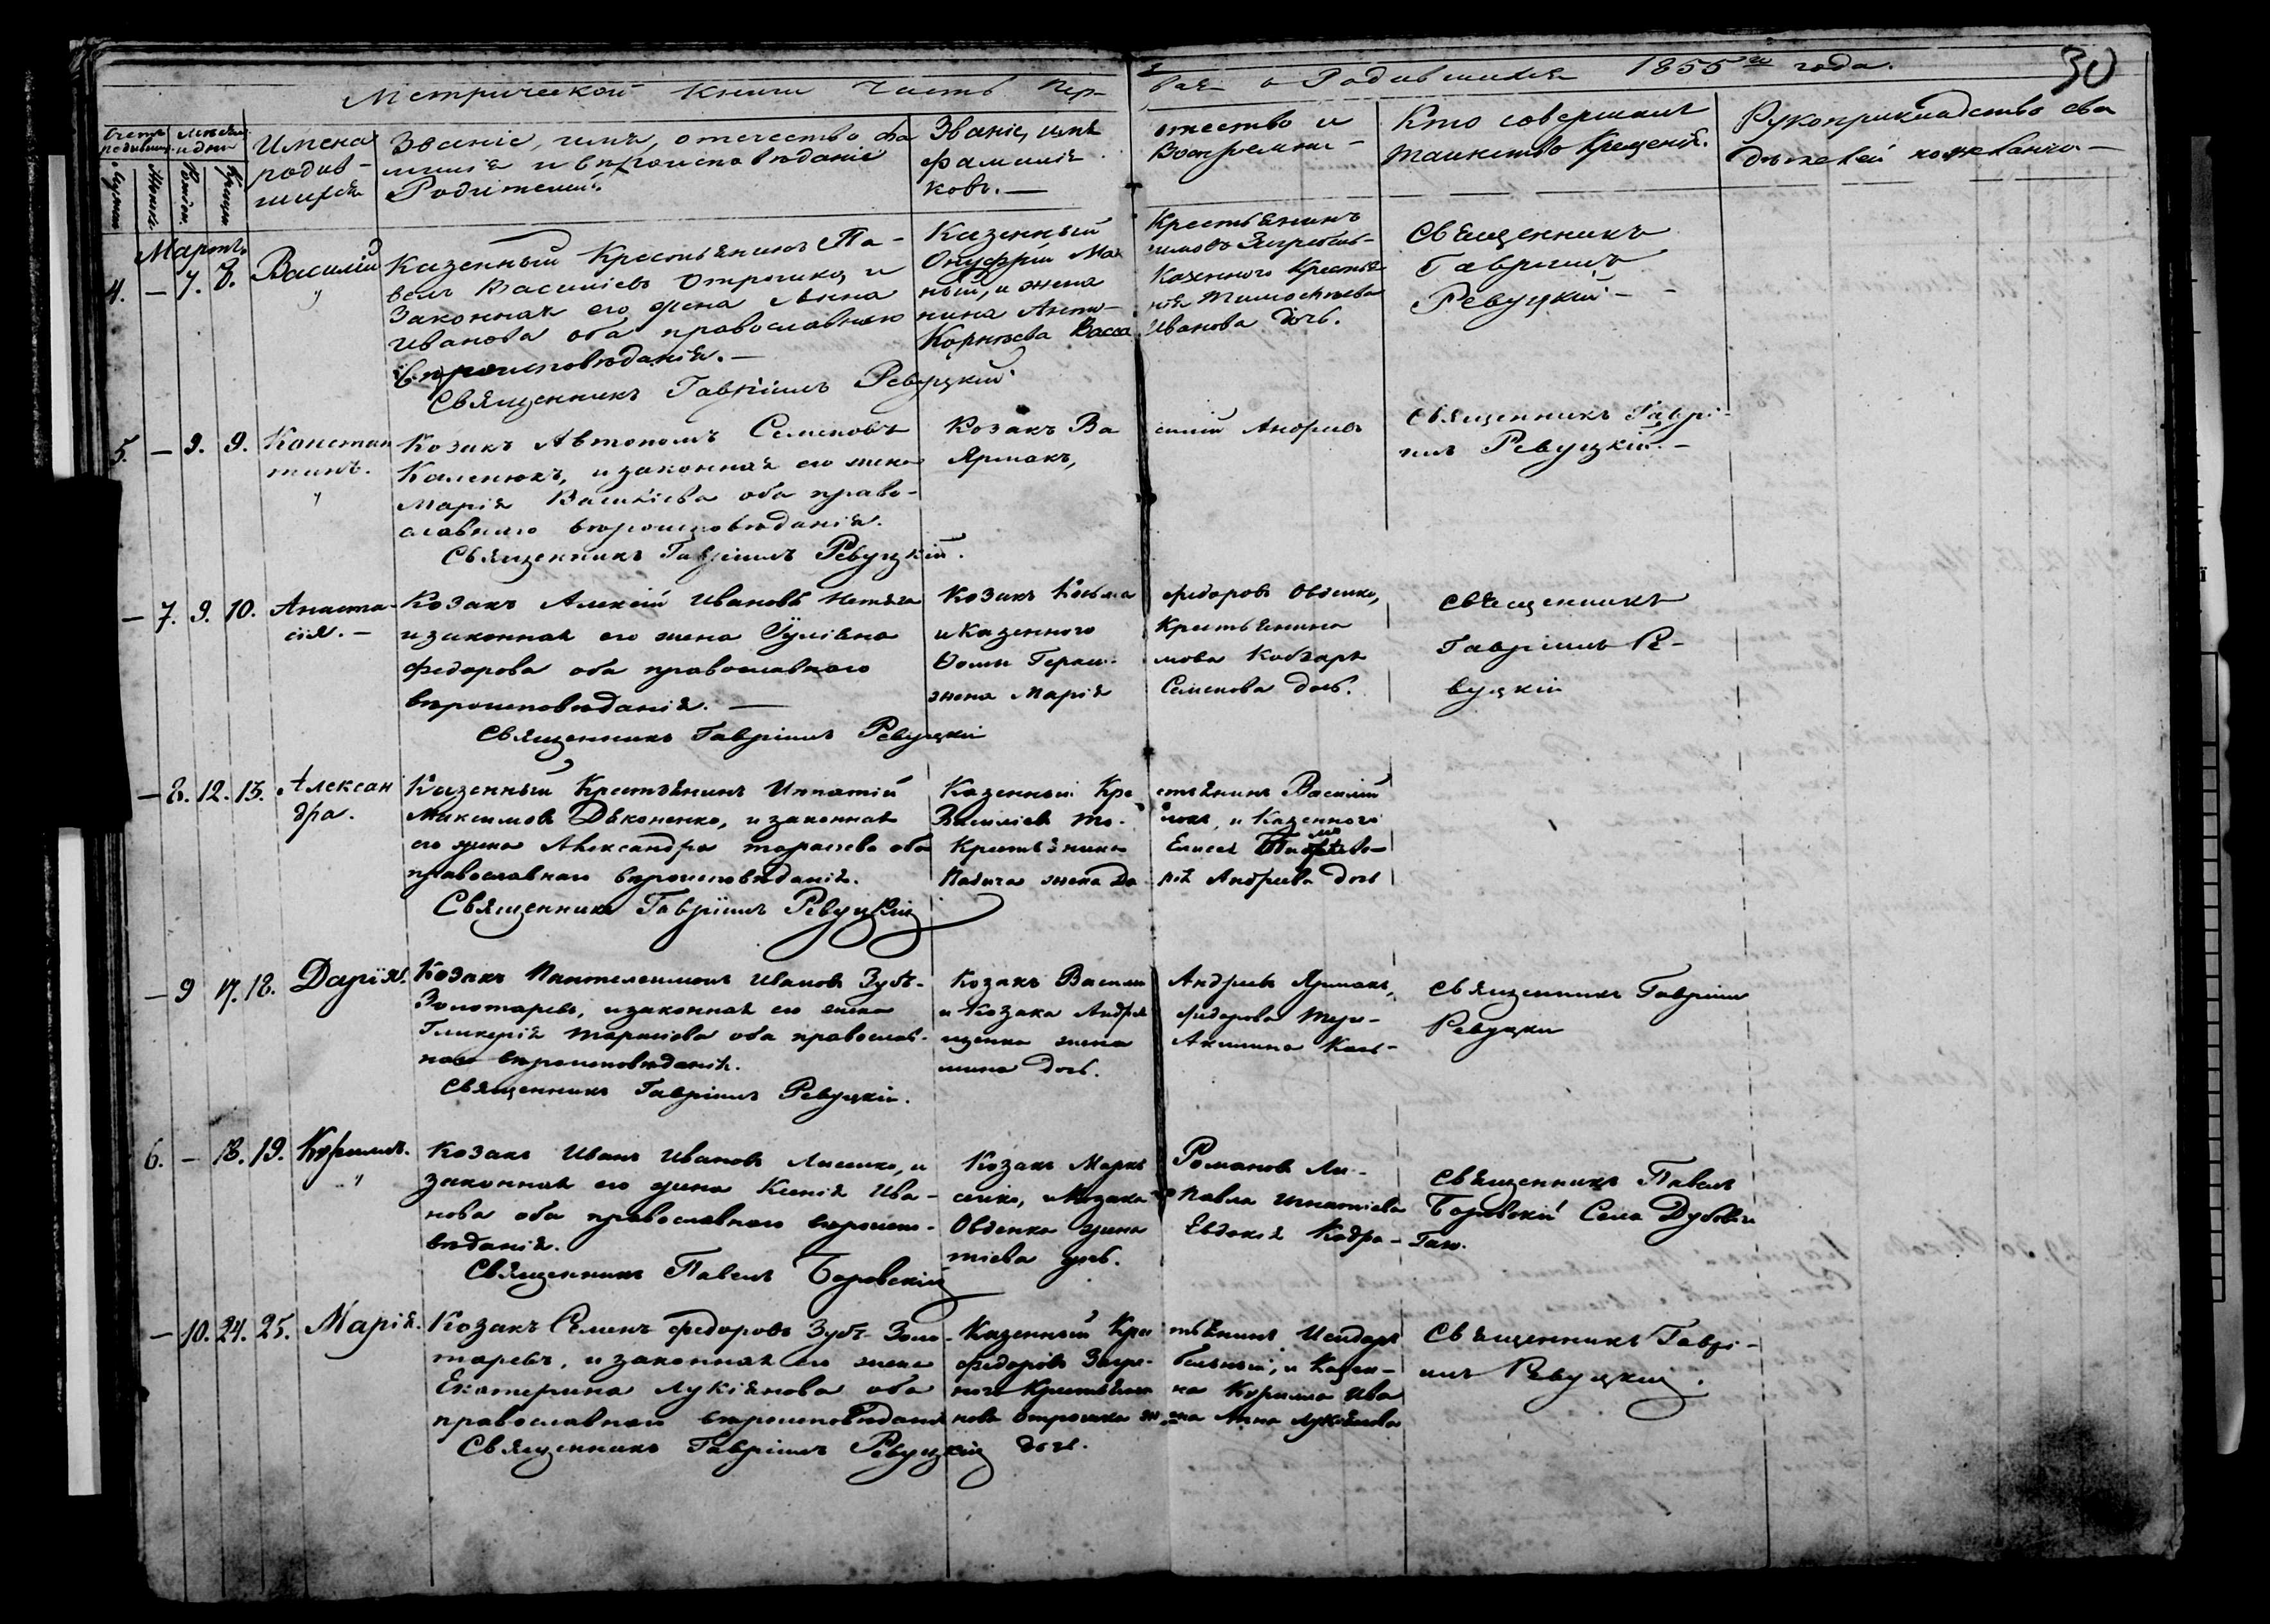 30
Метрической Книги Часть Пер-
вая о Родившихся 1855го года.
Имена
родив-
шихся
Званіе, имя, отечество фа
милія и вѣроисповѣданіе
Родителей.
Званіе, имя
фамилія
ковъ. —
отчество и
Воспріемни-
Кто совершилъ
таинство Крещенія.
Рукоприкладство сви
дѣтелей по желанію —
Мартъ
4. — 7. 8. Василій
Казенный Крестьянинъ Па-
велъ Василіевъ Отрошко, и
Законная его жена Анна
Иванова оба православнаго
Вѣроисповѣданія. —
Священникъ Гавріилъ Ревуцкій
Казенный
Онуфрій
ный, и жена
Корнѣева Васса
Крестьянинъ
Казенного Крестья
Иванова дочь.
Священникъ
Гавріилъ
Ревуцкій —
5. — 9. 9. Констан
тинъ.
Козакъ Автономъ Семеновъ
Каленюкъ, и законная его жена
Марія Василіева оба право-
славнаго вѣроисповѣданія.
Священникъ Гавріилъ Ревуцкій.
Козакъ Ва
Ярмакъ,
силій Андреевъ
Священникъ Гаврі-
илъ Ревуцкій. —
— 7. 9. 10. Анаста-
сія. —
Козакъ Алексій Ивановъ Нетяга
и законная его жена Іуліяна
Федорова оба православнаго
вѣроисповѣданія. —
Священникъ Гавріилъ Ревуцкій
Козакъ Козьма
и Казенного
Фомы Гераси-
жена Марія
Федоровъ Овдѣнко,
Крестьянина
мова Кобзаря
Семенова дочь.
Священникъ
Гавріилъ Ре-
вуцкій
— 8. 12. 13. Алексан
дра.
Казенный Крестьянинъ Ипатій
Максимовъ Дяконенко, и законная
его жена Александра Тарасіева оба
православнаго вѣроисповѣданія.
Священникъ Гавріилъ Ревуцкій
Казенный Кре
Василіевъ
Крестьянина
жена Да
стьянинъ Василій
и Казенного
Елисея
рія Андреева дочь
— 9 17. 18. Дарія.
Козакъ Пантелеимонъ Ивановъ Зубъ-
Золотаревъ, и законная его жена
Гликерія Тарасіева оба православ-
наго вѣроисповѣданія.
Священникъ Гавріилъ Ревуцкій.
Козакъ Василій
и Козака Андрея
щенка жена
мина дочь.
Андреевъ Ярмакъ,
Федорова
Акилина Козь-
Священникъ Гавріилъ
Ревуцкій
6. — 18. 19. Кирилъ.
Козакъ Иванъ Ивановъ Лисенко, и
законная его жена Ксенія Ива-
нова оба православнаго вѣроиспо-
вѣданія.
Священникъ Павелъ Боровскій
Козакъ Маркъ
сенко, и Козака
Овденка жена
тіева дочь.
Романовъ Ли-
Павла Игнатіева
Евдокія Кодра-
Священникъ Павелъ
Боровскій Села Дубовы
Гаю.
— 10. 24. 25. Марія.
Козакъ Семенъ Федоровъ Зубъ-Золо-
таревъ, и законная его жена
Екатерина Лукіянова оба
православнаго вѣроисповѣданія
Священникъ Гавріилъ Ревуцкій
Казенный Крес
Федоровъ Загре-
ного Крестьяни
нова Отрошка же
дочь.
тьянинъ Исидоръ
бельный, и Казен-
на Кирилла Ива
на Анна Лукіянова
Священникъ Гаврі-
илъ Ревуцкій.